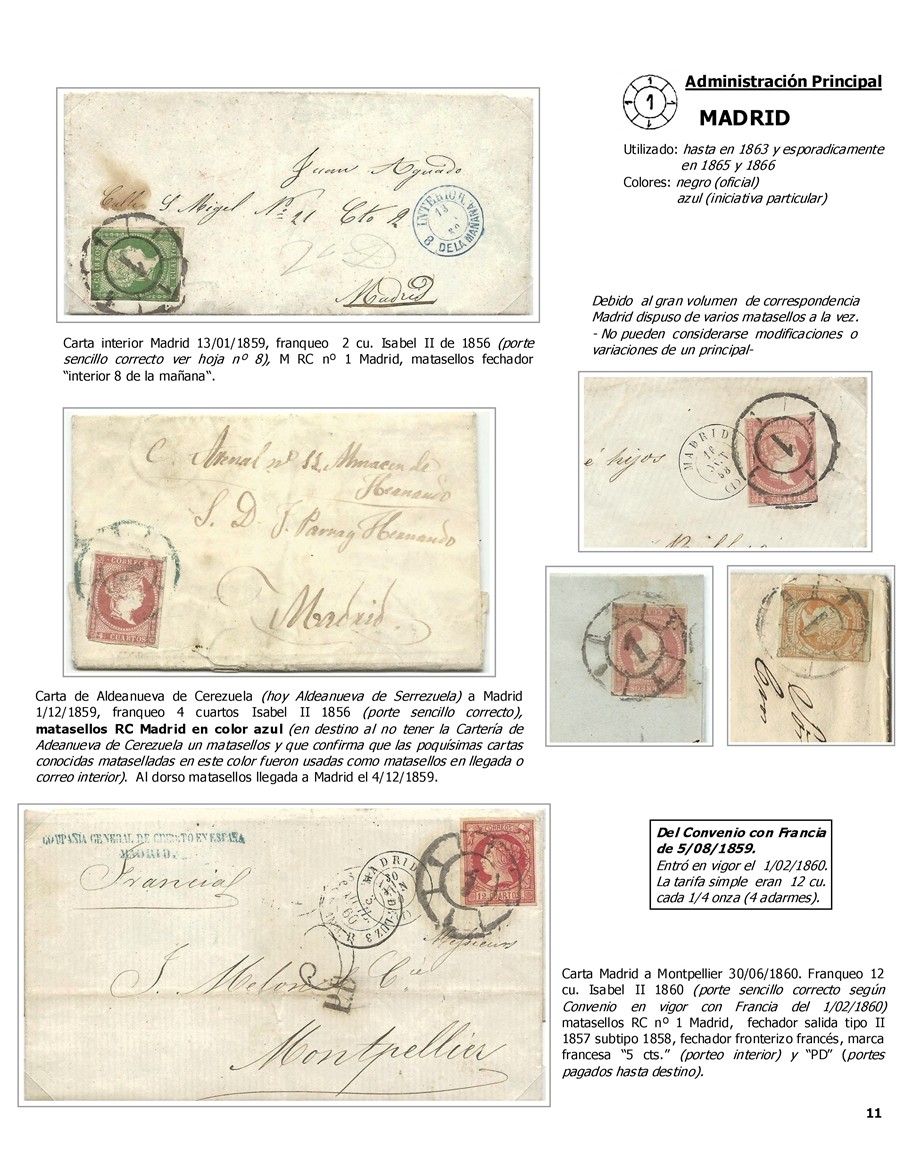 Administración Principal
MADRID
Utilizado: hasta en 1863 y esporadicamente
en 1865 y 1866
Colores: negro (oficial)
azul (iniciativa particular)
1
1
1
1
1
Juan Aguado
Calle S Migel Nº 21 Cto 2
Madrid
INTERIOR
13
8 DE LA MAÑANA
CORREOS
CUARTOS
1
Carta interior Madrid 13/01/1859, franqueo 2 cu. Isabel II de 1856 (porte
sencillo correcto ver hoja nº 8), M RC nº 1 Madrid, matasellos fechador
“interior 8 de la mañana“.
Debido al gran volumen de correspondencia
Madrid dispuso de varios matasellos a la vez.
- No pueden considerarse modificaciones o
variaciones de un principal-
C. Arenal nº 11 Almacen de
Hernando
S. D. J. Hernando
Madrid
CORREOS
4 CUARTOS
é hijos
MADRID
16
OCT
58
(1)
1
CUARTOS
1
1
Carta de Aldeanueva de Cerezuela (hoy Aldeanueva de Serrezuela) a Madrid
1/12/1859, franqueo 4 cuartos Isabel II 1856 (porte sencillo correcto),
matasellos RC Madrid en color azul (en destino al no tener la Cartería de
Adeanueva de Cerezuela un matasellos y que confirma que las poquísimas cartas
conocidas mataselladas en este color fueron usadas como matasellos en llegada o
correo interior). Al dorso matasellos llegada a Madrid el 4/12/1859.
COMPAÑIA GENERAL DE CREDITO EN ESPAÑA
MADRID.
Francia
MADRID
30
60
CORREOS
12 CUARTOS
Messieurs
J. Melon & Cie
P.D.
Montpellier
Del Convenio con Francia
de 5/08/1859.
Entró en vigor el 1/02/1860.
La tarifa simple eran 12 cu.
cada 1/4 onza (4 adarmes).
Carta Madrid a Montpellier 30/06/1860. Franqueo 12
cu. Isabel II 1860 (porte sencillo correcto según
Convenio en vigor con Francia del 1/02/1860)
matasellos RC nº 1 Madrid, fechador salida tipo II
1857 subtipo 1858, fechador fronterizo francés, marca
francesa “5 cts.” (porteo interior) y “PD” (portes
pagados hasta destino).
11